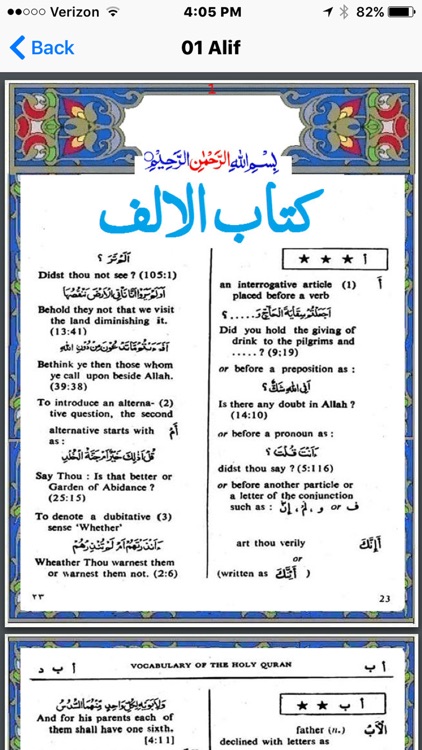 Verizon 4:05 PM 82%
Back 01 Alif
1
بسم الله الرحمن الرحيم
كتاب الالف
أ ★ ★ ★
an interrogative article (1) أَ
placed before a verb
Did you hold the giving of
drink to the pilgrims and
. . . . . ? (9;19)
or before a preposition as :
أَفِي اللهِ شَكٌّ ؟
Is there any doubt in Allah ?
(14:10)
or before a pronoun as :
ءَاَنْتَ قُلْتَ ؟
didst thou say ? (5:116)
or before another particle or
a letter of the conjunction
such as : إِنَّ , لَمْ , و or ف
art thou verily أَإِنَّكَ
or
(written as أَئِنَّكَ )
23
اَلَمْ تَرَ ؟
Didst thou not see ? (105:1)
Behold they not that we visit
the land diminishing it.
(13:41)
Bethink ye then those whom
ye call upon beside Allah.
(39:38)
To introduce an alterna- (2)
tive question, the second
alternative starts with أَمْ
as :
قُلْ أَذٰلِكَ خَيْرٌ أَمْ جَنَّةُ الْخُلْدِ
Say Thou : Is that better or
Garden of Abidance ?
(25:15)
To denote a dubitative (3)
sense 'Whether'
ءَاَنْذَرْتَهُمْ اَمْ لَمْ تُنْذِرْهُمْ
Wheather Thou warnest them
or warnest them not. (2:6)
٢٣
أ ب د VOCABULARY OF THE HOLY QURAN أ ب
أ ب ★ ★
father (n.) الْأَبُ
declined with letters as
And for his parents each of
them shall have one sixth.
[4:11]